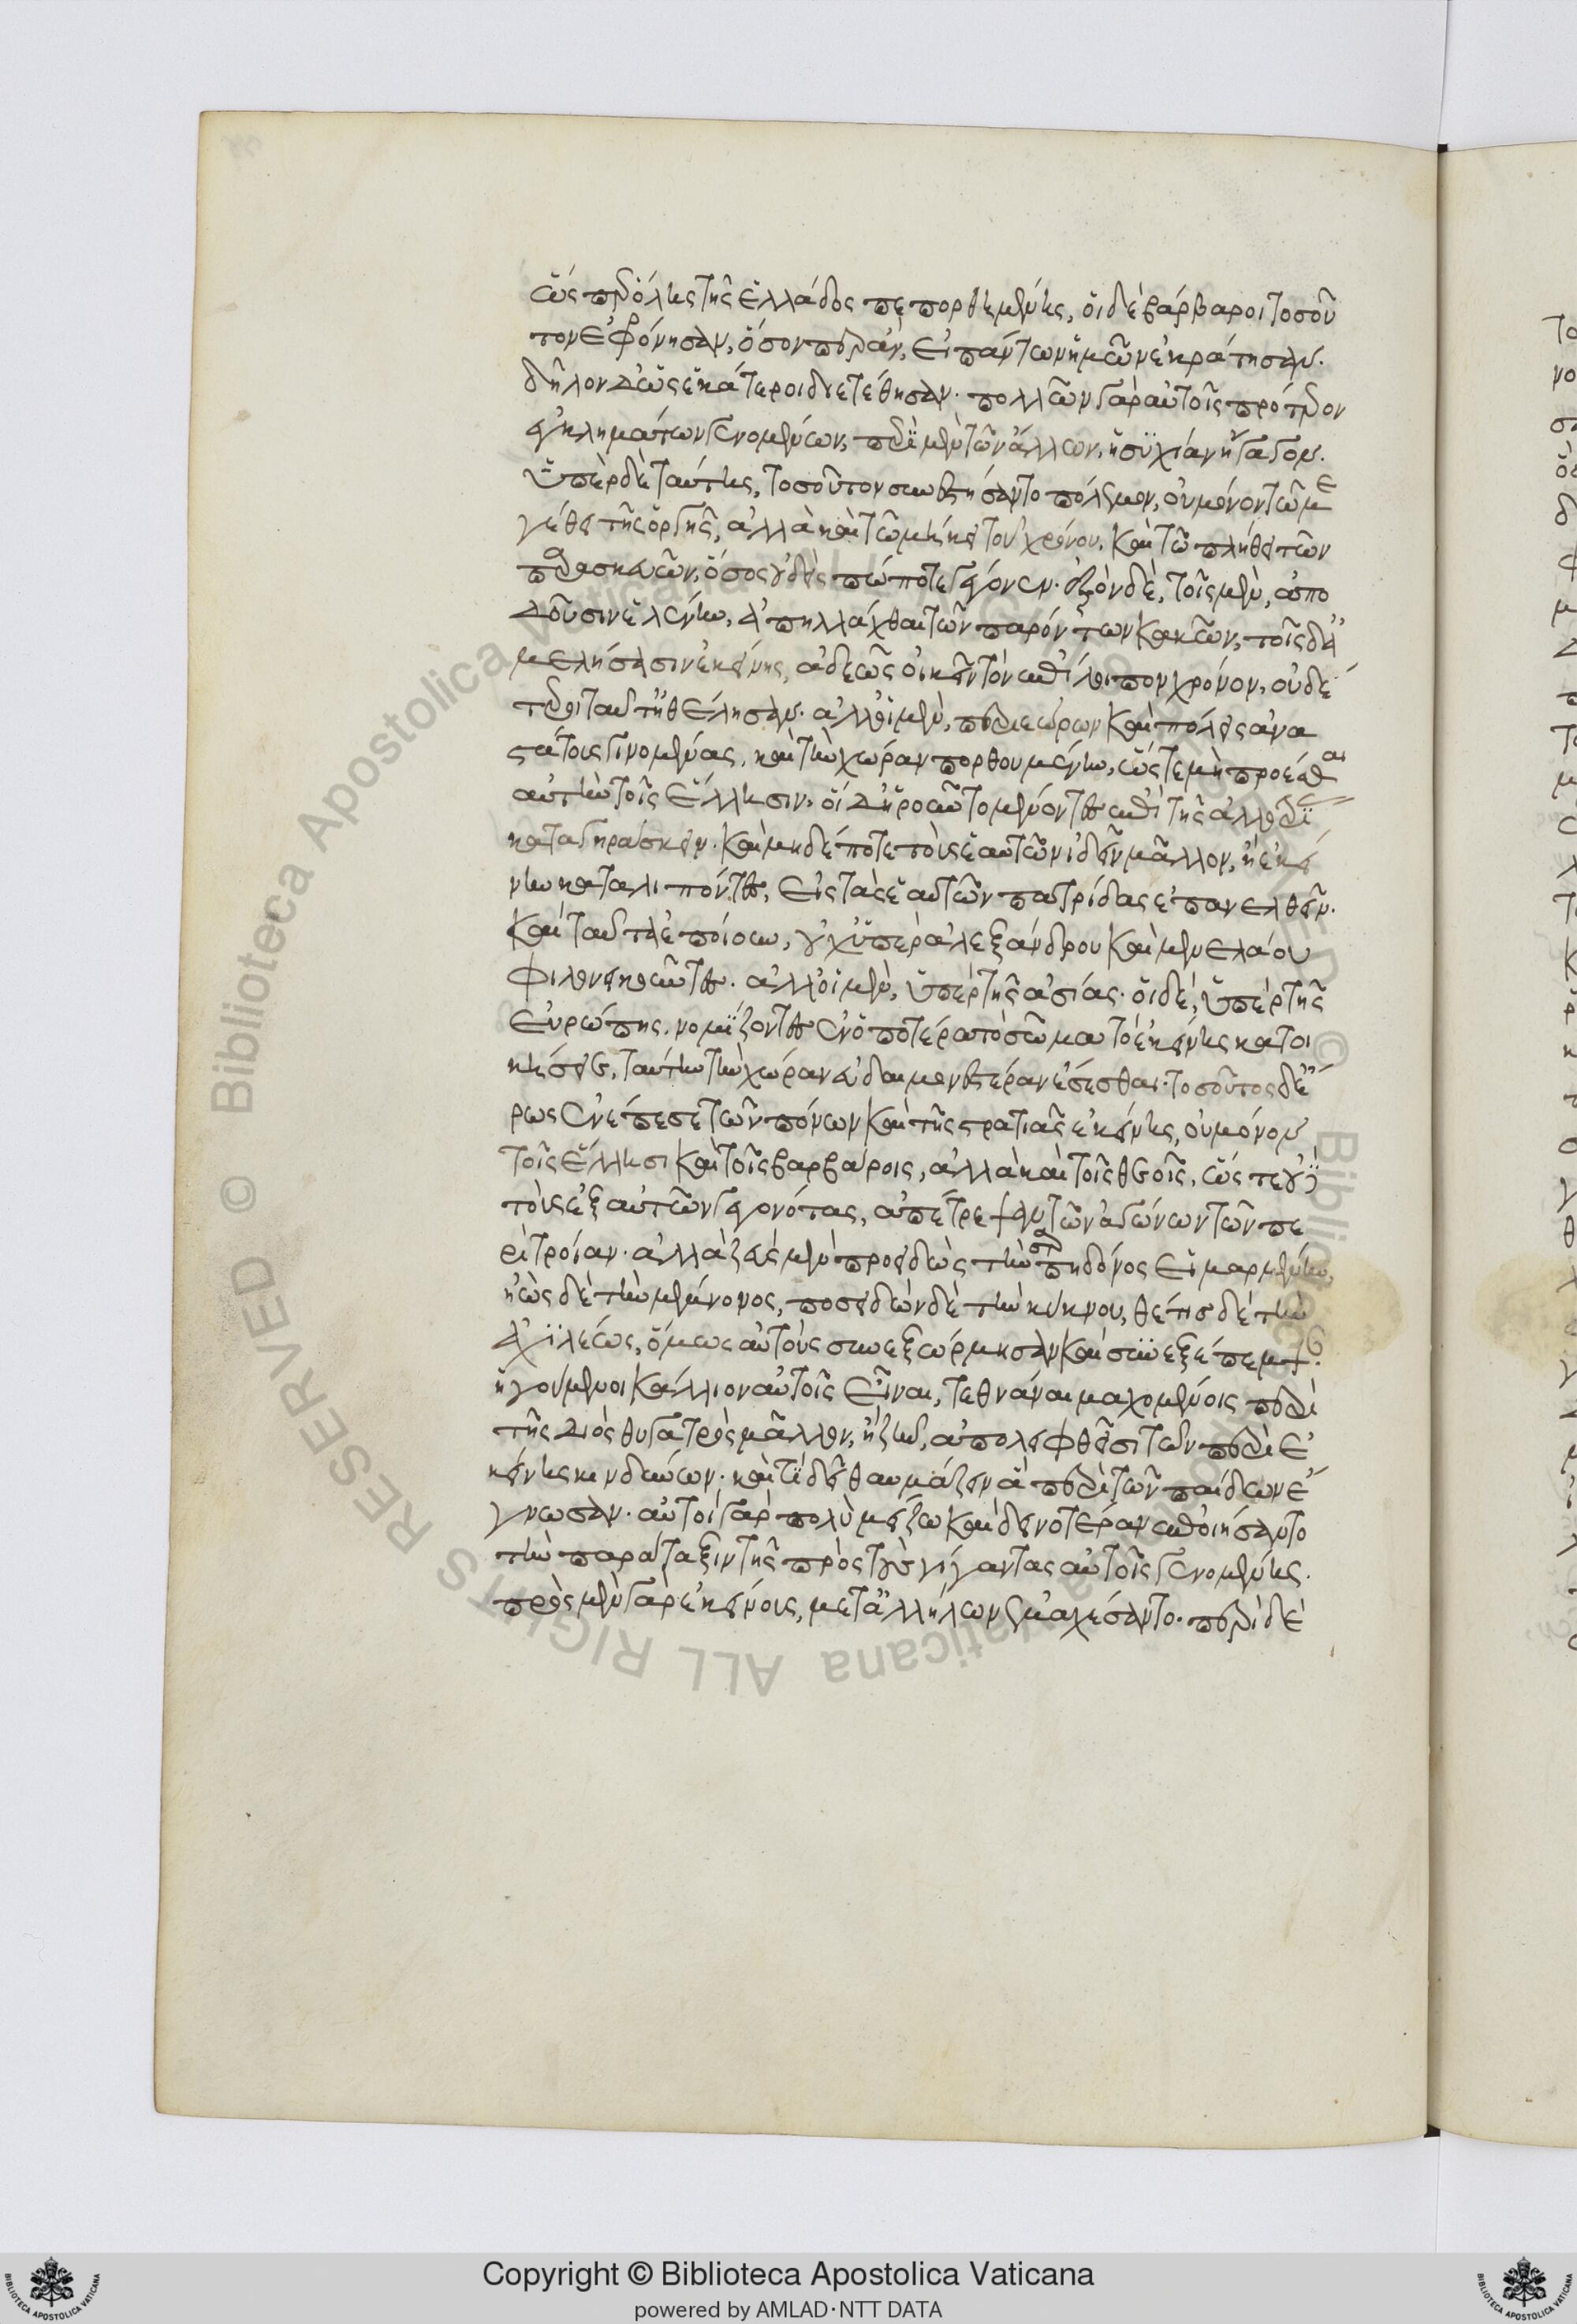 ὥσπερ ὅλης τῆς ἑλλάδος πεπορθημένης, οἱ δὲ βάρβαροι τοσοῦ
τον ἐφρόνησαν, ὅσον περ ἂν, εἰ πάντων ἡμῶν ἐκράτησαν.
δῆλον δ' ὡς ἑκάτεροι διετέθησαν. πολλῶν γὰρ αὐτοῖς πρότερον
ἐγκλημάτων γενομένων, περὶ μὲν τῶν ἄλλων, ἡσυχίαν ἤγαγον.
ὑπὲρ δὲ ταύτης, τοσοῦτον συνεστήσαντο πόλεμον, οὐ μόνον τῷ με
γέθει τῆς ὀργῆς, ἀλλὰ καὶ τῷ μήκει τοῦ χρόνου, καὶ τῷ πλήθει τῶν
παρασκευῶν, ὅσος οὐδεὶς πώποτε γέγονεν. ἐξὸν δὲ, τοῖς μὲν, ἀπο
δοῦσιν ἑλένην, ἀπηλλάχθαι τῶν παρόντων κακῶν, τοῖς δ' ἀ
μελήσασιν ἐκείνης, ἀδεῶς οἰκεῖν τὸν ἐπίλοιπον χρόνον, οὐδέ
τεροι ταῦτ' ἠθέλησαν. ἀλλ' οἱ μὲν, περιεώρων καὶ πόλεις ἀνα
στάτους γινομένας, καὶ τὴν χώραν πορθουμένην, ὥστε μὴ προέσθαι
αὐτὴν τοῖς ἕλλησιν. οἱ δ' ᾑροῦντο μένοντες ἐπὶ τῆς ἀλλοτρίας
καταγηράσκειν. καὶ μηδέποτε τοὺς ἑαυτῶν ἰδεῖν μᾶλλον, ἢ ἐκεί
νην καταλιπόντες, εἰς τὰς ἑαυτῶν πατρίδας ἐπανελθεῖν.
καὶ ταῦτ' ἐποίουν, οὐχ ὑπὲρ ἀλεξάνδρου καὶ μενελάου
φιλονεικοῦντες. ἀλλ' οἱ μὲν, ὑπὲρ τῆς ἀσίας. οἱ δὲ, ὑπὲρ τῆς
εὐρώπης. νομίζοντες ἐν ὁποτέρᾳ τὸ σῶμα τὸ ἐκείνης κατοι
κήσει, ταύτην τὴν χώραν εὐδαιμονεστέραν ἔσεσθαι. τοσοῦτος δ' ἔ
ρως ἐνέπεσε τῶν πόνων καὶ τῆς στρατιᾶς ἐκείνης, οὐ μόνον
τοῖς ἕλλησι καὶ τοῖς βαρβάροις, ἀλλὰ καὶ τοῖς θεοῖς, ὥστε οὐδὲ
τοὺς ἐξ αὐτῶν γεγονότας, ἀπέτρεψαν τῶν ἀγώνων τῶν πε
ρὶ τροίαν. ἀλλὰ ζεὺς μὲν προειδὼς τὴν σαρπηδόνος εἱμαρμένην,
ἠὼς δὲ τὴν μέμνονος, ποσειδῶν δὲ τὴν κύκνου, θέτις δὲ τὴν
ἀχιλέως, ὅμως αὐτοὺς συνεξώρμησαν καὶ συνεξέπεμψαν.
ἡγούμενοι κάλλιον αὐτοῖς εἶναι, τεθνάναι μαχομένοις περὶ
τῆς διὸς θυγατρὸς μᾶλλον, ἢ ζῆν, ἀπολειφθεῖσι τῶν περὶ ἐ
κείνης κινδύνων. καὶ τί δεῖ θαυμάζειν ἃ περὶ τῶν παίδων ἔ
γνωσαν. αὐτοὶ γὰρ πολὺ μείζω καὶ δεινοτέραν ἐποιήσαντο
τὴν παράταξιν τῆς πρὸς τοὺς γίγαντας αὐτοῖς γενομένης.
πρὸς μὲν γὰρ ἐκείνους, μετ' ἀλλήλων ἐμαχέσαντο. περὶ δὲ